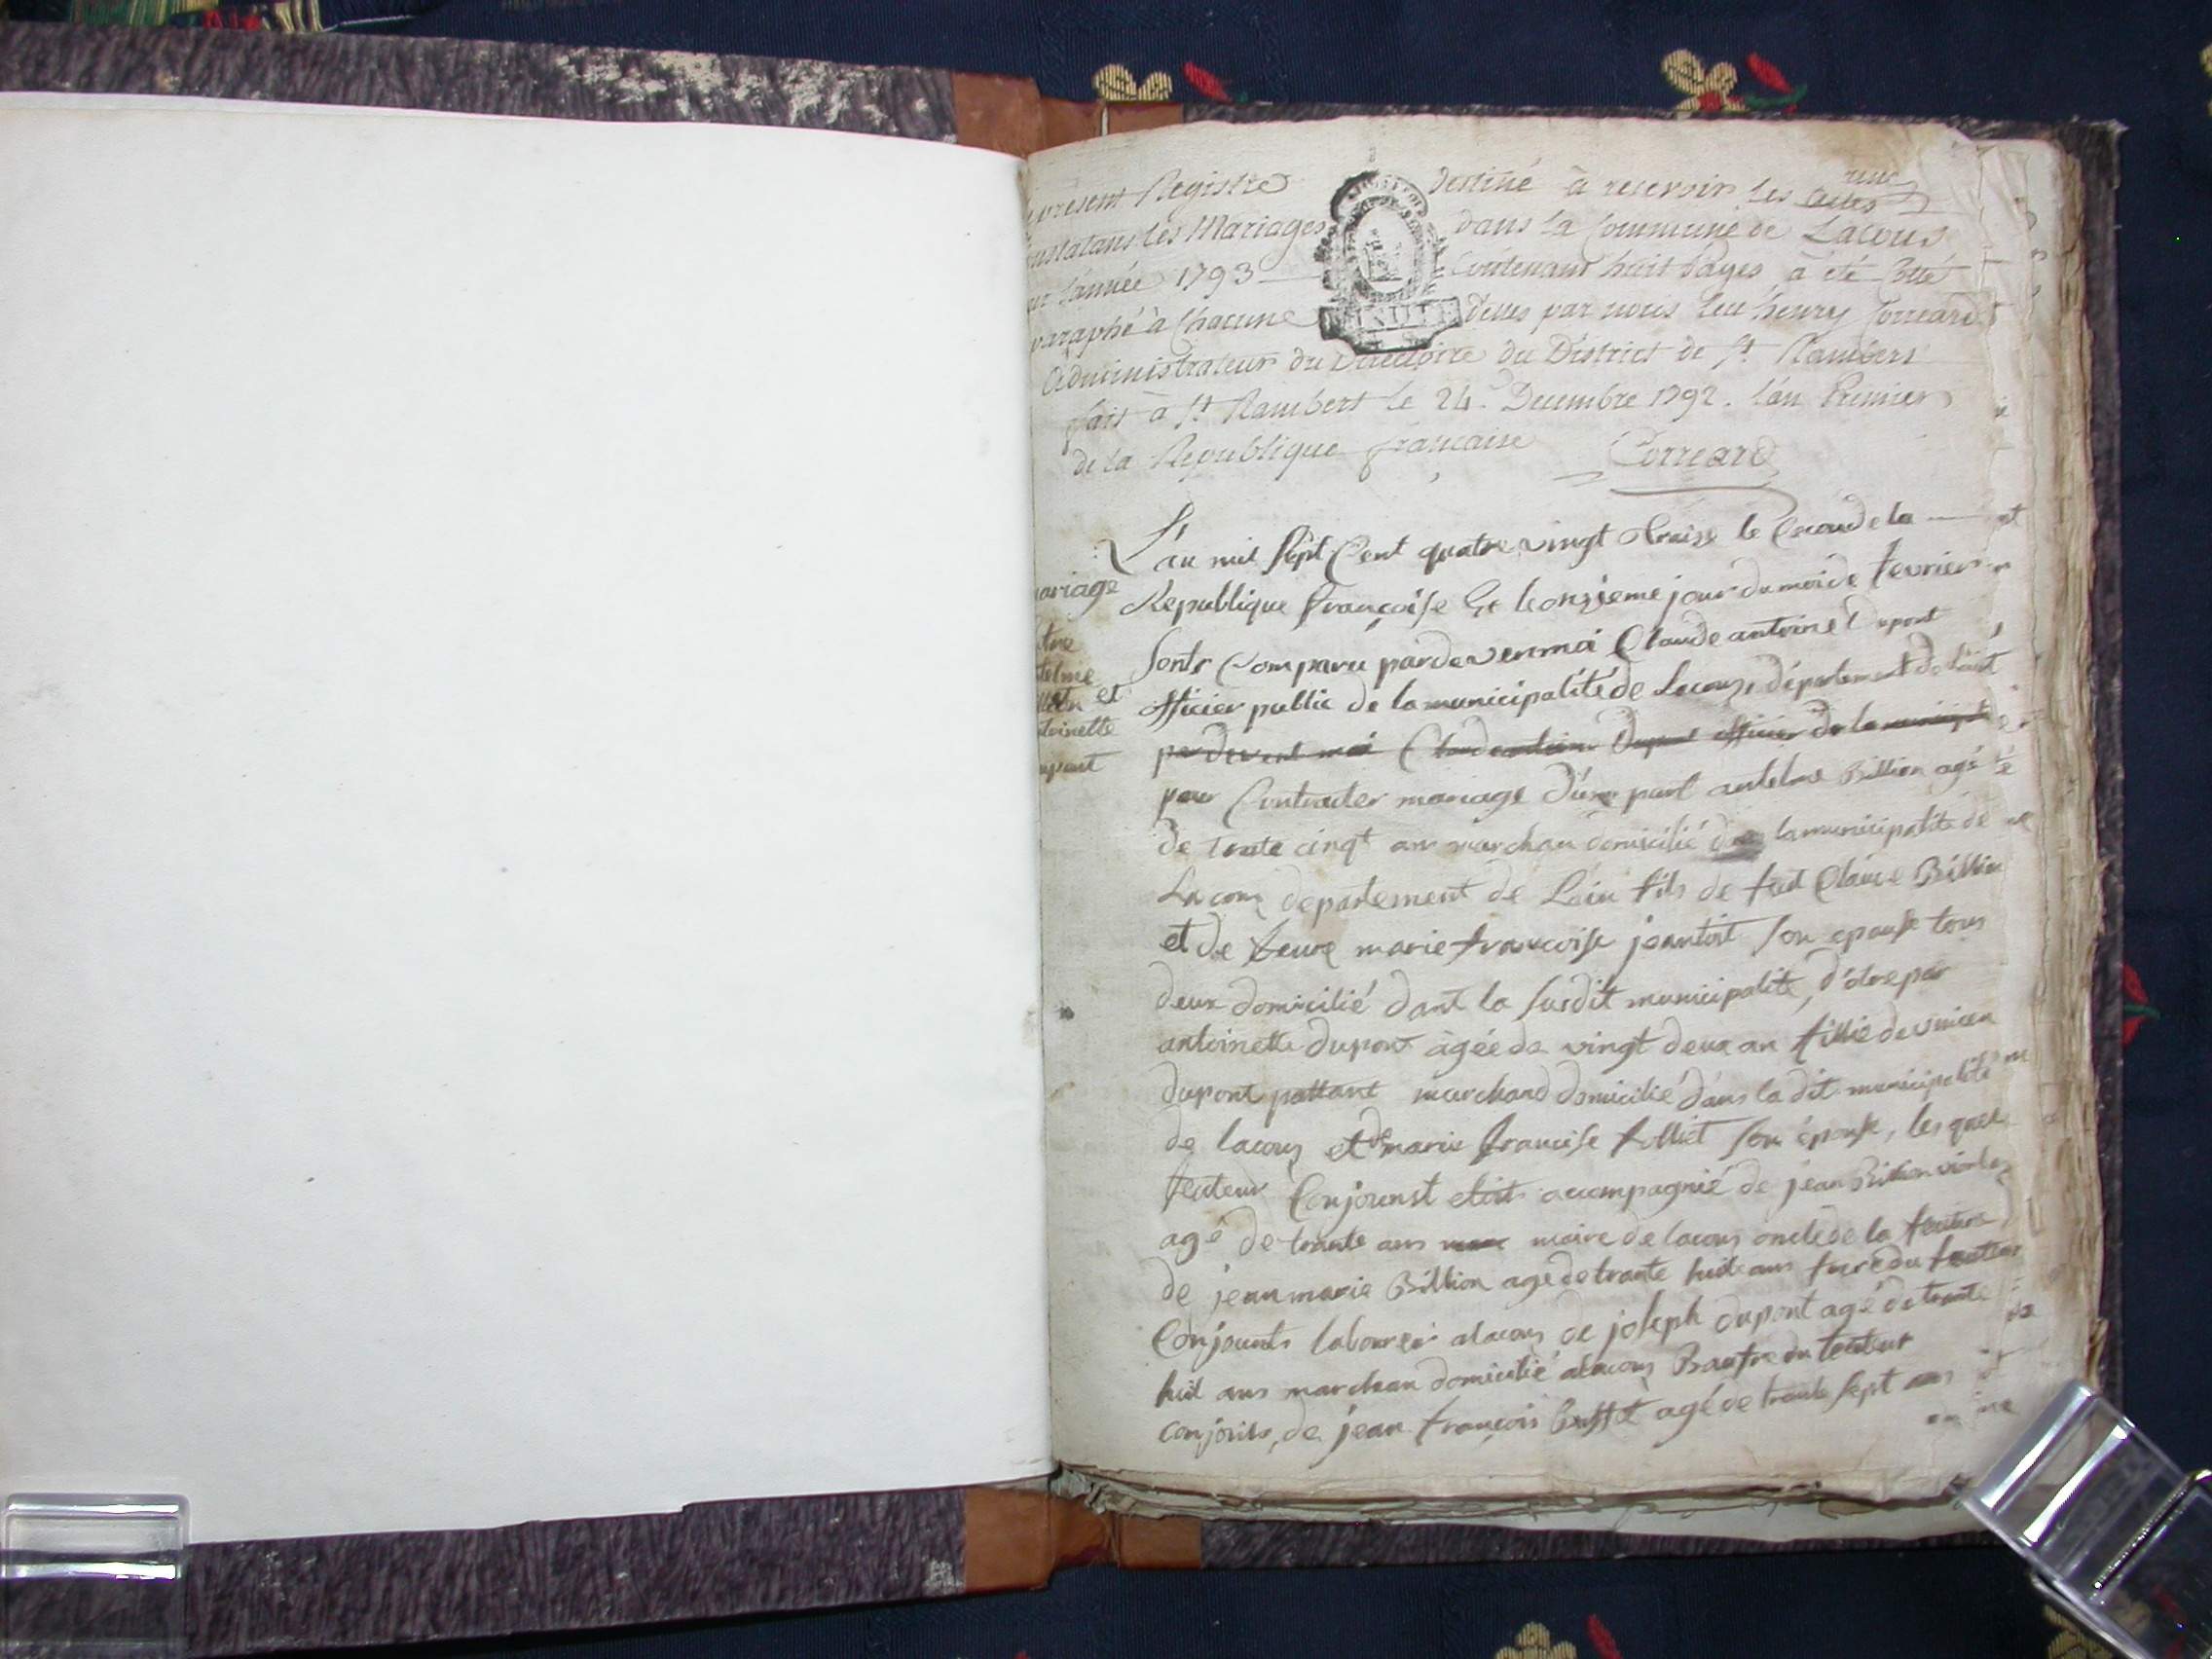 present Registre destiné à recevoir les actes
constatans les Mariages dans la Commune de Lacous
l'année 1793 Contenant huit pages à été Cotté
paraphé à Chacune d'elles par nous henry Correard
Administrateur du Directoire du District de St Rambert
fait à St Rambert le 24 Decembre 1792. l'an Premier
de la Republique française Correard
L'an mil Sept Cent quatre vingt traise le Second de la
mariage
Republique françoise Et le onzieme jour du moi de fevrier
Sont Comparu pardevenmoi Claude antoine Dupont
officier public de la municipalité de Lacous, département de Lain
par devent moi Claude antoine Dupont officier de la municipal
pour Contracter mariage d'une part antelme Billion agé
de trante cinqt ans marchan domicilié dans la municipalité de
Lacous departement de Lain fils de feu Claude Billion
et de feuve marie francoise jeantet Son epouse tous
deux domicilié dant la Susdit municipalité, d'otre par
antoinette dupont âgée de vingt deux an fillie de vincen
dupont pattant marchand domicilié dans la dit municipalité
de lacous et de marie francise follliet Son épouse, les quels
feuteur Conjoinst etoit accompagnié de jean Billion
agé de trante ans maire de lacous oncle de la feuture
de jean marie Billion age de trante huit ans frere du feuteur
Conjoints laboureur alacous de joseph dupont agé de trante
huit ans marchan domicilié alacous Baufre du feuteur
conjoits, de jean françois agé de trante Sept ans
et
antoinette